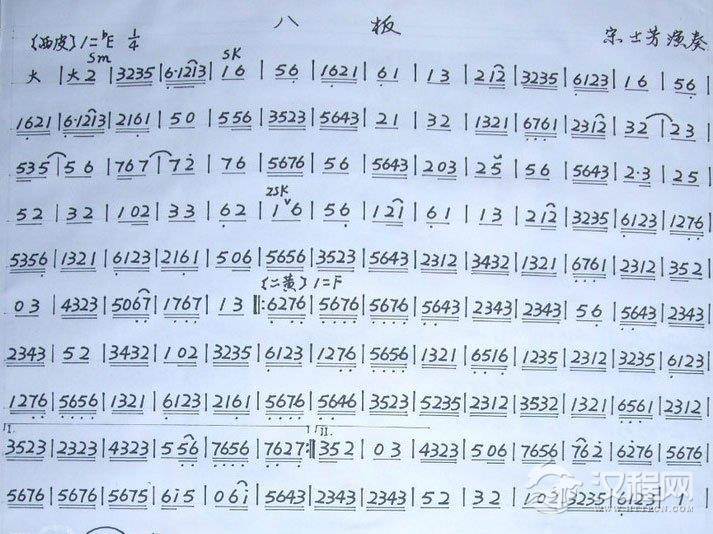 八 板
(西皮) 1=♭E 1/4 宗士芳演奏
Sm SK
大 | 大 2 | 3235 | 6·1213 | 1 6 | 5 6 | 1621 | 6 1 | 1 3 | 212 | 3235 | 6123 | 1 6 | 5 6 |
1621 | 6·1213 | 2161 | 5 0 | 5 56 | 3523 | 5643 | 2 1 | 3 2 | 1321 | 6761 | 2312 | 3 2 | 2 3 |
535 | 5 6 | 767 | 7 2 | 7 6 | 5676 | 5 6 | 5643 | 203 | 2 5 | 5 6 | 5643 | 2·3 | 2 5 |
ZSK
5 2 | 3 2 | 102 | 3 3 | 6 2 | 1 ˅6 | 5 6 | 121 | 6 1 | 1 3 | 212 | 3235 | 6123 | 1276 |
5356 | 1321 | 6123 | 2161 | 506 | 5656 | 3523 | 5643 | 2312 | 3432 | 1321 | 6761 | 2312 | 352 |
(二黄) 1=F
0 3 | 4323 | 5067 | 1767 | 1 3 ‖: 6276 | 5676 | 5676 | 5643 | 2343 | 2343 | 5 6 | 5643 | 2343 |
2343 | 5 2 | 3432 | 102 | 3235 | 6123 | 1276 | 5656 | 1321 | 6516 | 1235 | 2312 | 3235 | 6123 |
1276 | 5656 | 1321 | 6123 | 2161 | 5676 | 5646 | 3523 | 5235 | 2312 | 3532 | 1321 | 6561 | 2312 |
I. II.
3523 | 2323 | 4323 | 556 | 7656 | 7627 :‖ 352 | 0 3 | 4323 | 506 | 7656 | 762 | 6276 | 5676 |
5676 | 5676 | 5675 | 6i5 | 06i | 5643 | 2343 | 2343 | 5 2 | 3 2 | 102 | 3235 | 6123 | 1 |
汉程网
HTTPCN.COM